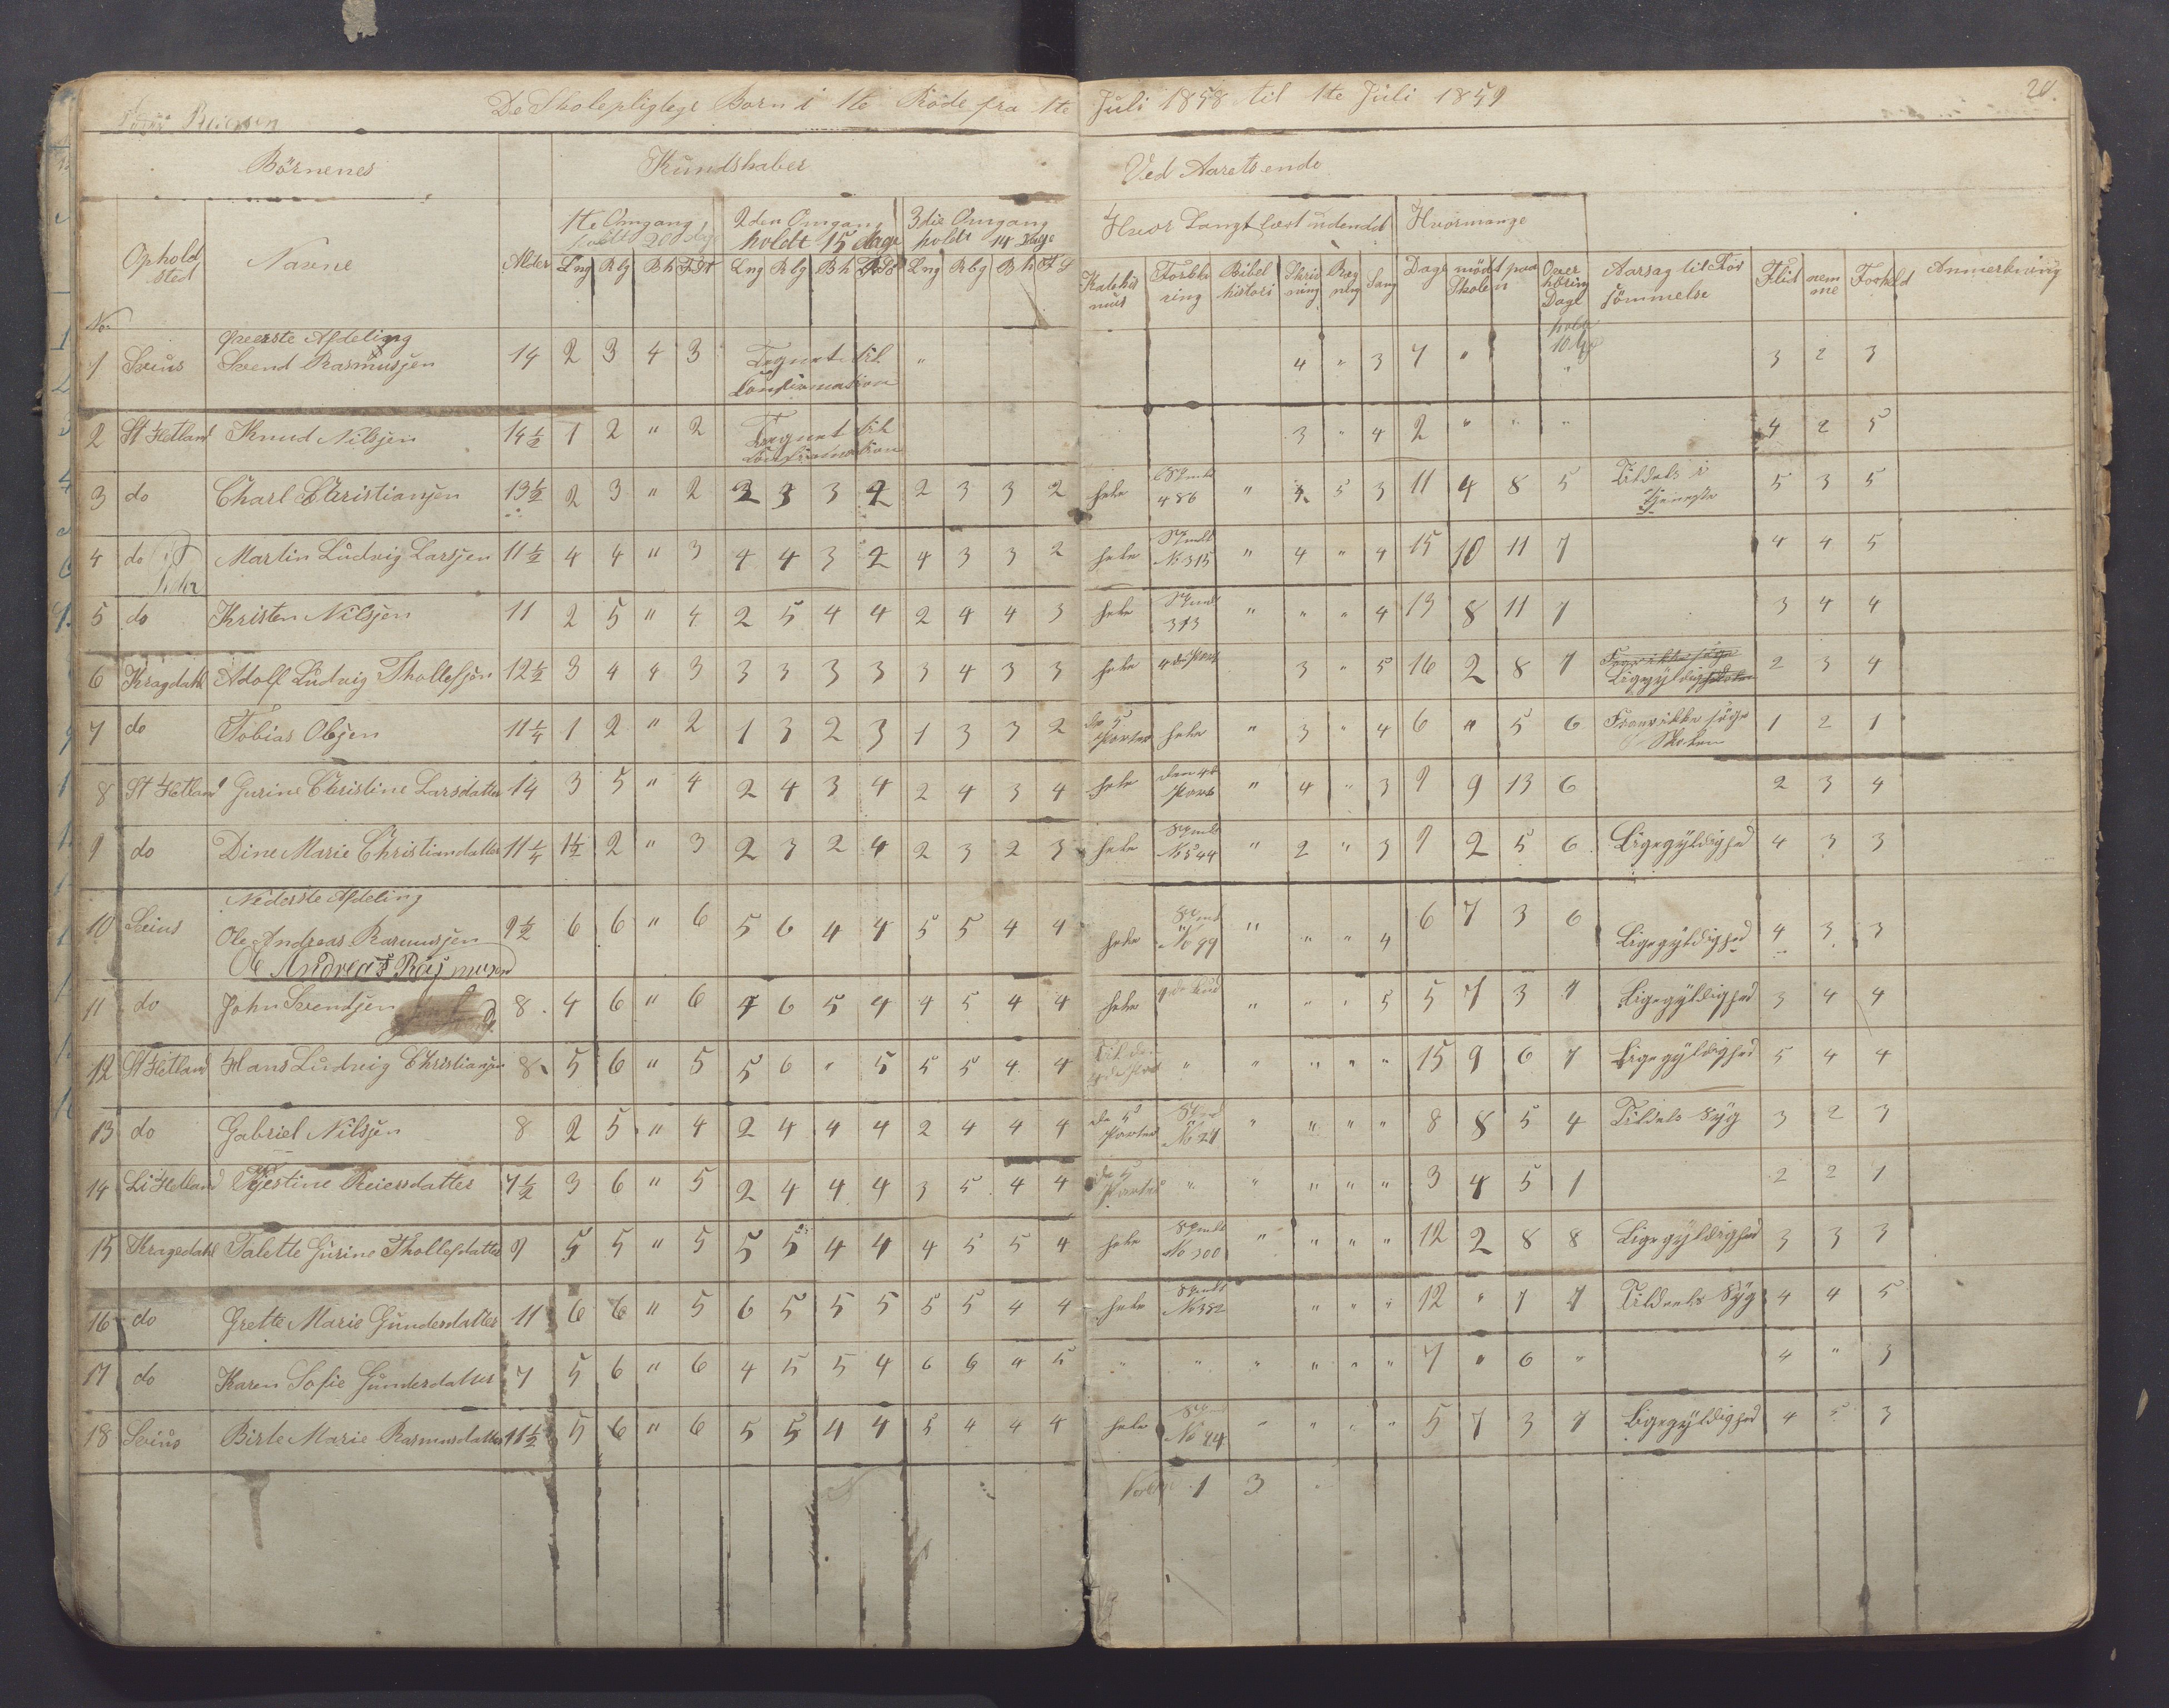 De Skolepligtege Born i 1te Rode fra 1te Juli 1858 til 1te Juli 1859 20.
Reiersen
Börnenes Kundskaber Ved Aarets ende
1te Omgang 2den Omgang 3die Omgang Hvor Langt læst udenad Hvormange
holdt 20 Dage holdt 15 dage holdt 14 Dage
Ophold sted Navne Alder Lng Rlg Bh F St Lng Rlg Bh Lng Rlg Bh F S Katekis mus Forkla ring Bibel histori Skriv ning Reg ning Sang Dage mödt paa Skolen Over höring Dage Aarsag til For sömmelse Flid nem me Forhold Anmerkning
No. holdt 10 Dg
Överste Afdeling
1 Sveiüs Svend Rasmusjen 14 2 3 4 3 Tegnet til Confirmation " 4 " 3 7 " " 3 2 3
2 St Hetland Knud Nilsjen 14½ 1 2 " 2 Tegnet til Confirmation 3 " 4 2 " " " 4 2 5
3 do Charl Christiansjen 13½ 2 3 " 2 2 3 3 2 2 3 3 2 hele 486 " 3 5 3 11 4 8 5 Tildels i Tjeneste 5 3 5
4 do Martin Ludvig Larsjen 11½ 4 4 " 3 4 4 3 2 4 3 3 2 hele No 315 " 4 " 4 15 10 11 7 4 4 5
5 do Kristen Nilsjen 11 2 5 " 4 2 5 4 4 2 4 4 3 hele 313 " " " 4 13 8 11 7 3 4 4
6 Kragdahl Adolf Ludvig Thollefsjen 12½ 3 4 4 3 3 3 3 3 3 4 3 3 hele 4de Part 3 " 5 16 2 8 7 Ligegyldighed 2 3 4
7 do Tobias Olsjen 11¼ 1 2 " 2 1 3 2 3 1 3 3 2 de 5 Parter hele " 3 " 4 6 " 5 6 Skolen 1 2 1
8 St Hetland Gurine Christine Larsdatter 14 3 5 " 4 2 4 3 4 2 4 3 4 hele den 4de Part " 4 " 3 9 9 13 6 2 3 4
9 do Dine Marie Christiandatter 11¼ 1½ 2 " 3 2 3 2 4 2 3 2 3 hele No 544 " 2 " 3 9 2 5 6 Ligegyldighed 4 3 3
Nederste Afdeling
10 Sveiüs Ole Andreas Rasmusjen 9½ 6 6 " 6 5 6 4 4 5 5 4 4 hele No 99 " " " 4 6 7 3 6 Ligegyldighed 4 3 3
Ole Andreas Rasmusen
11 do John Svendsjen 8 4 6 " 6 4 6 5 4 4 5 4 4 hele " " " 5 5 7 3 7 Ligegyldighed 3 4 4
12 St Hetland Hans Ludvig Christiansjen 8 5 6 " 5 5 6 " 5 5 5 4 4 Til den 4de Part " " " " " 15 9 6 7 Ligegyldighed 5 4 4
13 do Gabriel Nilsjen 8 2 5 " 4 2 4 4 4 2 4 4 4 de 5 Parter No 21 " " " " 8 8 5 4 Tildels Syg 3 2 3
14 Li Hetland Kjestine Reiersdatter 7½ 3 6 " 5 2 4 4 4 3 5 4 4 de 5 Parter " " " " " 3 4 5 1 2 2 1
15 Kragedahl Talette Gurine Thollefsdatter 9 5 5 " 5 5 5 4 4 4 5 5 4 hele No 300 " " " " 12 2 8 8 Ligegyldighed 3 3 3
16 do Grette Marie Gundersdatter 11 6 6 " 5 6 5 5 5 5 5 4 4 hele No 352 " " " 12 " 7 7 Tildeels Syg 4 4 5
17 do Karen Sofie Gundersdatter 7 5 6 " 6 4 5 5 4 6 6 4 5 " " " " " " 7 " 6 " 4 " 3
18 Sveiüs Birte Marie Rasmusdatter 11½ 5 6 " 6 5 5 4 4 5 4 4 4 hele No 44 " " " " 5 7 3 7 Ligegyldighed 4 5 3
1 3